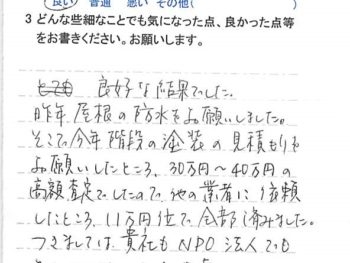 良い 普通 悪い その他(　　　)
3 どんな些細なことでも気になった点、良かった点等
をお書きください。お願いします。
とても 良好な結果でした。
昨年 屋根の防水をお願いしました。
そこで今年階段の塗装の見積もりを
お願いしたところ、30万円〜40万円の
高額査定でしたので、他の業者に依頼
したところ、11万円位で全部済みました。
つきましては、貴社もNPO法人でも